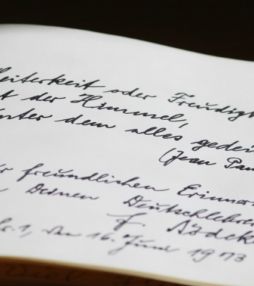 eiterkeit oder Freudigk
t der Himmel,
nter dem alles gedei
(Jean Pau
r freundlichen Erinner
Deinen Deutschlehrer
F.
1, den 16. Juni 1973